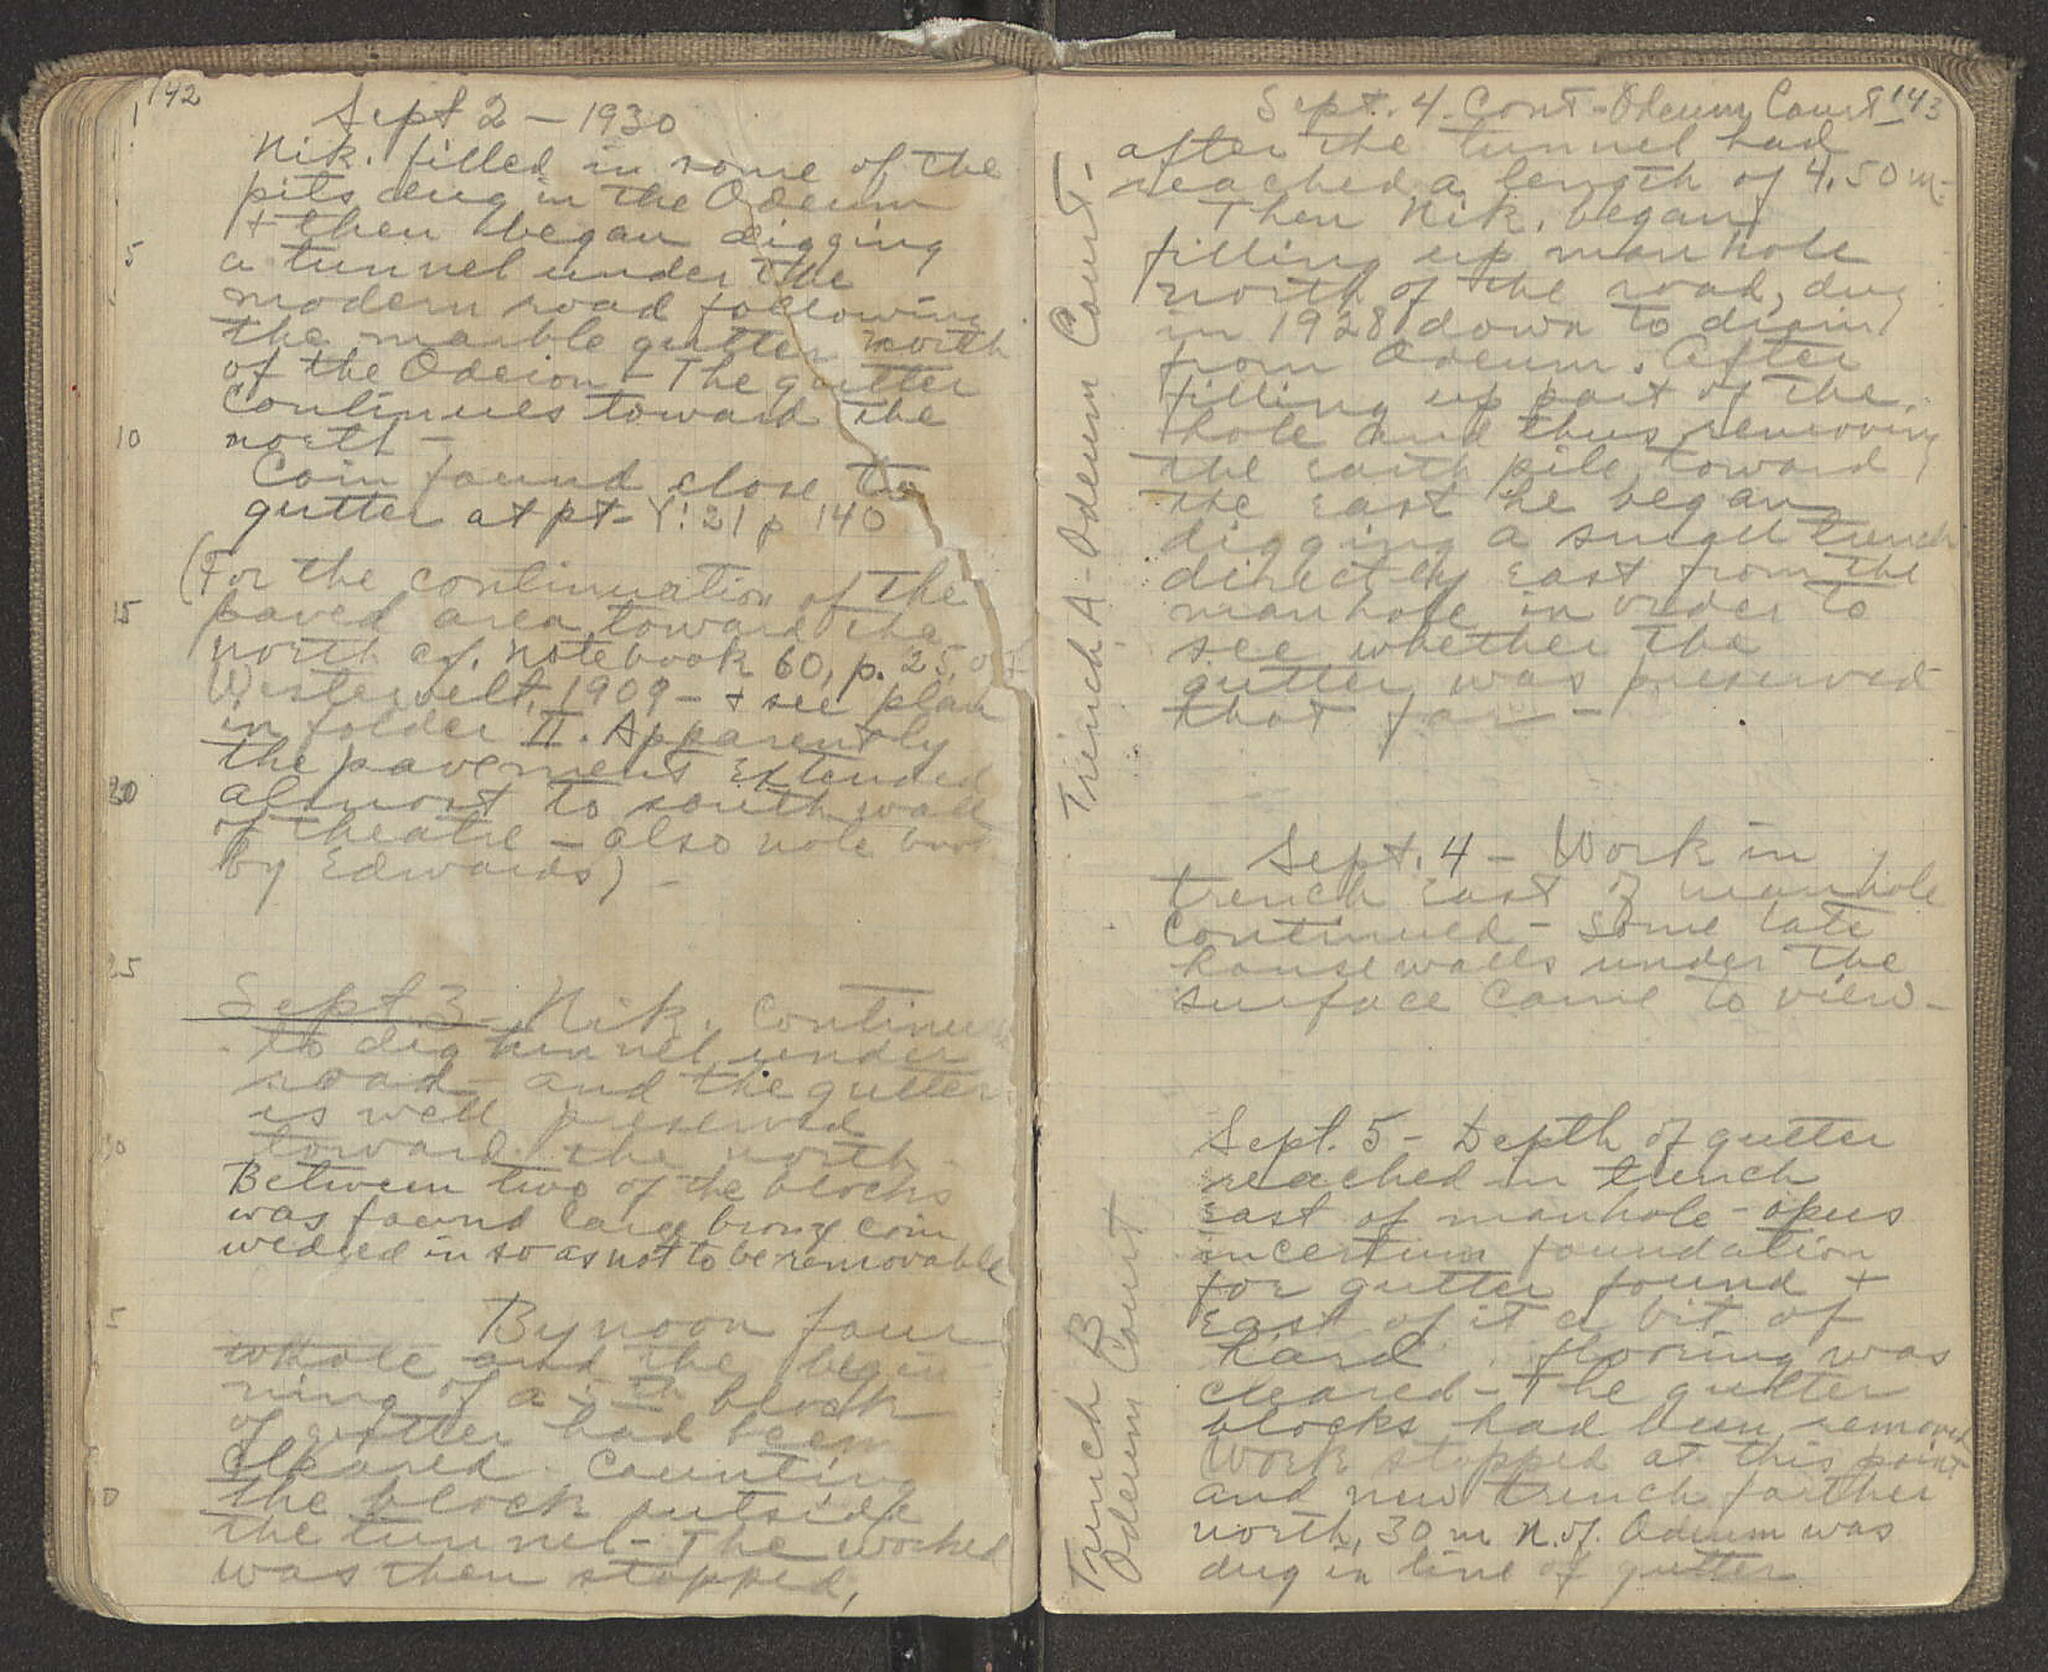 142
Sept 2 – 1930
Nik. filled in some of the
pits dug in the Odeum
+ then began digging
5
a tunnel under the
modern road following
the marble gutter north
of the Odeion – The gutter
continues toward the
10
north –
Coin found close to
gutter at pt – Y! 21 p 140
(For the continuation of the
15
paved area toward the
north cf. notebook 60, p. 25, of
Westervelt, 1909 – + see plan
in folder II. Apparently
the pavement extended
20
almost to south wall
of theatre – also note book
by Edwards) –
25
Sept 3 – Nik. continues
to dig tunnel under
road – and the gutter
is well preserved
30
toward the north –
Between two of the blocks
was found large bronze coin
wedged in so as not to be removable
5
By noon four
whole and the begin
ning of a 5th block
of gutter had been
cleared. Counting
0
the block outside
the tunnel – The worked
was then stopped,
Sept. 4. Cont – Odeum Court – 143
Trench A – Odeum Court –
after the tunnel had
reached a length of 4.50 m.
Then Nik. began
filling up manhole
north of the road, dug
in 1928 down to drain
from Odeum. After
filling up part of the
hole and thus removing
the earth pile toward
the east he began
digging a small trench
directly east from the
manhole in order to
see whether the
gutter was preserved
that far –
Sept. 4 – Work in
trench east of manhole
continued – some late
house walls under the
surface came to view –
Trench B
Odeum Court
Sept. 5 – Depth of gutter
reached in trench
east of manhole – opus
incertum foundation
for gutter found +
east of it a bit of
hard flooring was
cleared – The gutter
blocks had been removed
Work stopped at this point
and new trench farther
north, 30 m N. of. Odeum was
dug in line of gutter